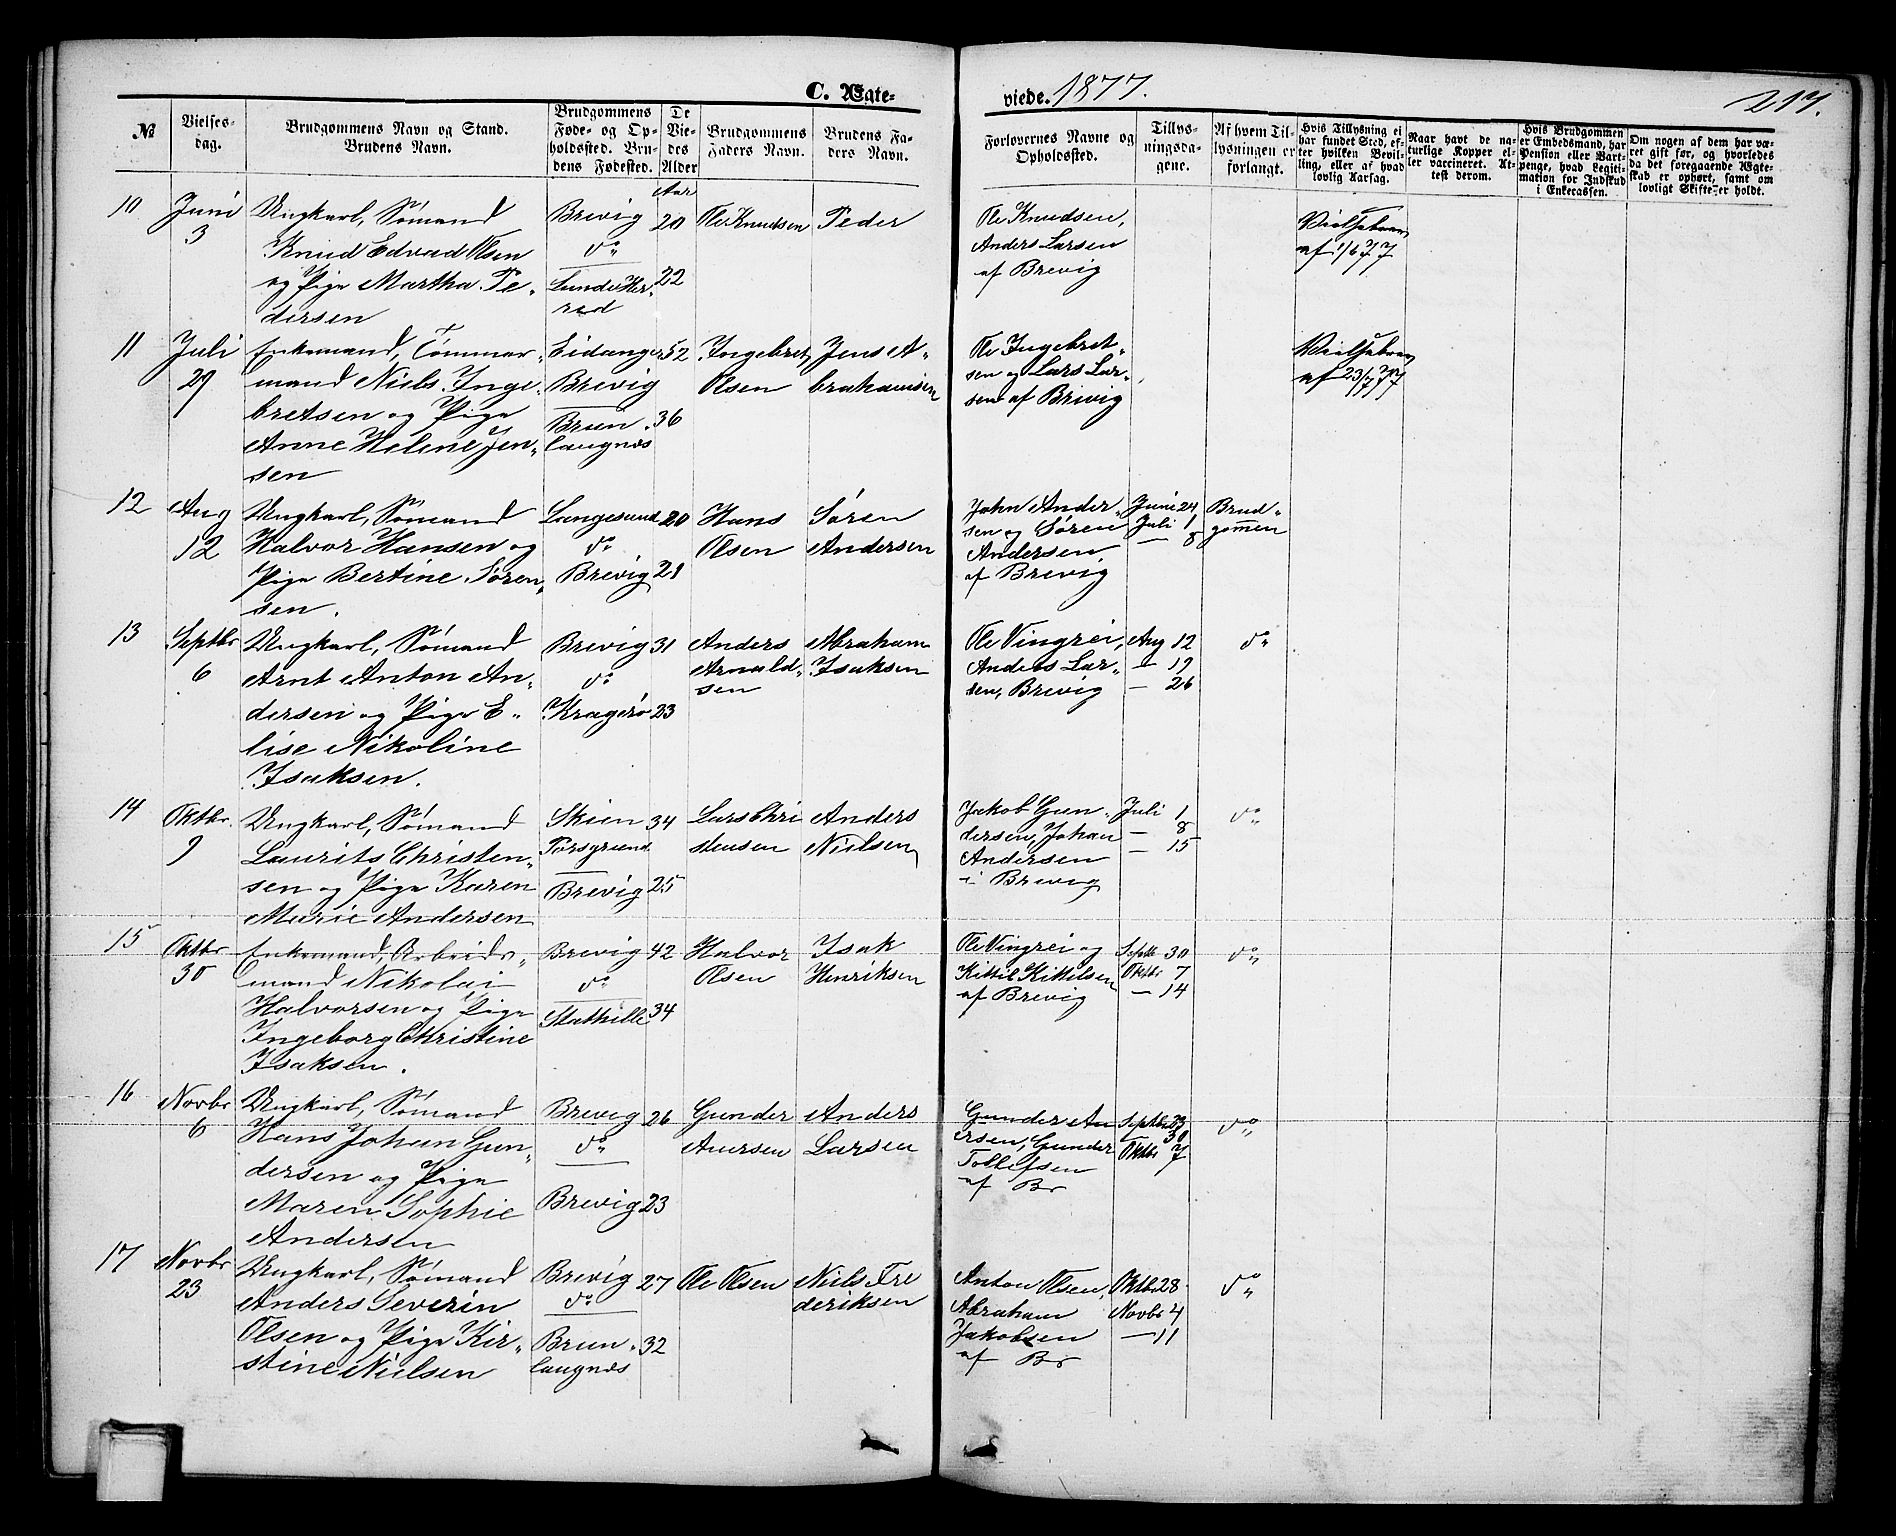 C. Ægte-
viede. 1877.
217.
№
Vielses-
dag.
Brudgommens Navn og Stand.
Brudens Navn.
Brudgommens
Føde- og Op-
holdssted. Bru-
dens Fødested.
De
Vie-
des
Alder
Brudgommens
Faders Navn.
Brudens Fa-
ders Navn.
Forlovernes Navne og
Opholdssted.
Tillys-
ningsda-
gene.
Af hvem Til-
lysningen er
forlangt.
Hvis Tillysning ei
har fundet Sted, ef-
ter hvilken Bevil-
ling, eller af hvad
lovlig Aarsag.
Naar havt de na-
turlige Kopper el-
ler vaccineret. At-
test derom.
Hvis Brudgommen
er Embedsmand, har
Pension eller Vart-
penge, hvad Legiti-
mation for Indskud
i Enkecassen.
Om nogen af dem har væ-
ret gift før, og hvorledes
da det foregaaende Ægte-
skab er ophørt, samt om
lovligt Skifte er holdt.
10
Juni
3
Ungkarl, Sømand
Knud Edvad Olsen
og Pige Martha Pe-
dersen
Brevig
do
Lunde Her-
red
Aar
20
22
Ole Knudsen
Peder
Ole Knudsen,
Anders Larsen
af Brevig
af 1/6 77
11
Juli
29
Enkemand, Tømmer-
mand Niels Inge-
bretsen og Pige
Anne Helene Jen-
sen
Eidanger
Brevig
Brun-
langnæs
52
36
Ingebret
Olsen
Jens A-
brahamsen
Ole Ingebret-
sen og Lars Lar-
sen af Brevig
af 23/7 77
12
Aug
12
Ungkarl, Sømand
Halvor Hansen og
Pige Bertine Søren-
sen.
Langesund
do
Brevig
20
21
Hans
Olsen
Søren
Andersen
John Ander-
sen og Søren
Andersen
af Brevig
Juni 24
Juli 1
— 8
Brud-
gom̅en
13
Septbr
6
Ungkarl, Sømand
Arnt Anton An-
dersen og Pige E-
lise Nikoline
Isaksen.
Brevig
do
Kragerø
31
23
Anders
Arnold-
sen
Abraham
Isaksen
Ole Vingrei,
Anders Lar-
sen, Brevig
Aug 12
— 19
— 26
do
14
Oktbr.
9
Ungkarl, Sømand
Laurits Christen-
sen og Pige Karen
Marie Andersen
Skien
Porsgrund
Brevig
34
25
Lars Chri
stensen
Anders
Nielsen
Jakob Gun-
dersen, Johan
Andersen
i Brevig
Juli 1
— 8
— 15
do
15
Oktbr
30
Enkemand, Arbeids-
mand Nikolai
Halvorsen og Pige
Ingeborg Christine
Isaksen.
Brevig
do
Stathille
42
34
Halvor
Olsen
Isak
Henriksen
Ole Vingrei og
Kittil Kittilsen
af Brevig
Septb 30
Oktbr 7
— 14
do
16
Novbr
6
Ungkarl, Sømand
Hans Johan Gun-
dersen og Pige
Maren Sophie
Andersen
Brevig
do
Brevig
26
23
Gunder
Anersen
Anders
Larsen
Gunder An
ersen, Gunder
Tollefsen
af Br
Septbr 23
30
Oktbr 7
do
17
Novbr
23
Ungkarl, Sømand
Anders Severin
Olsen og Pige Kir-
stine Nielsen
Brevig
do
Brun-
langnæs
27
32
Ole Olsen
Niels Fre
deriksen
Anton Olsen,
Abraham
Jakobsen
af Br
Oktbr 28
Novbr 4
— 11
do